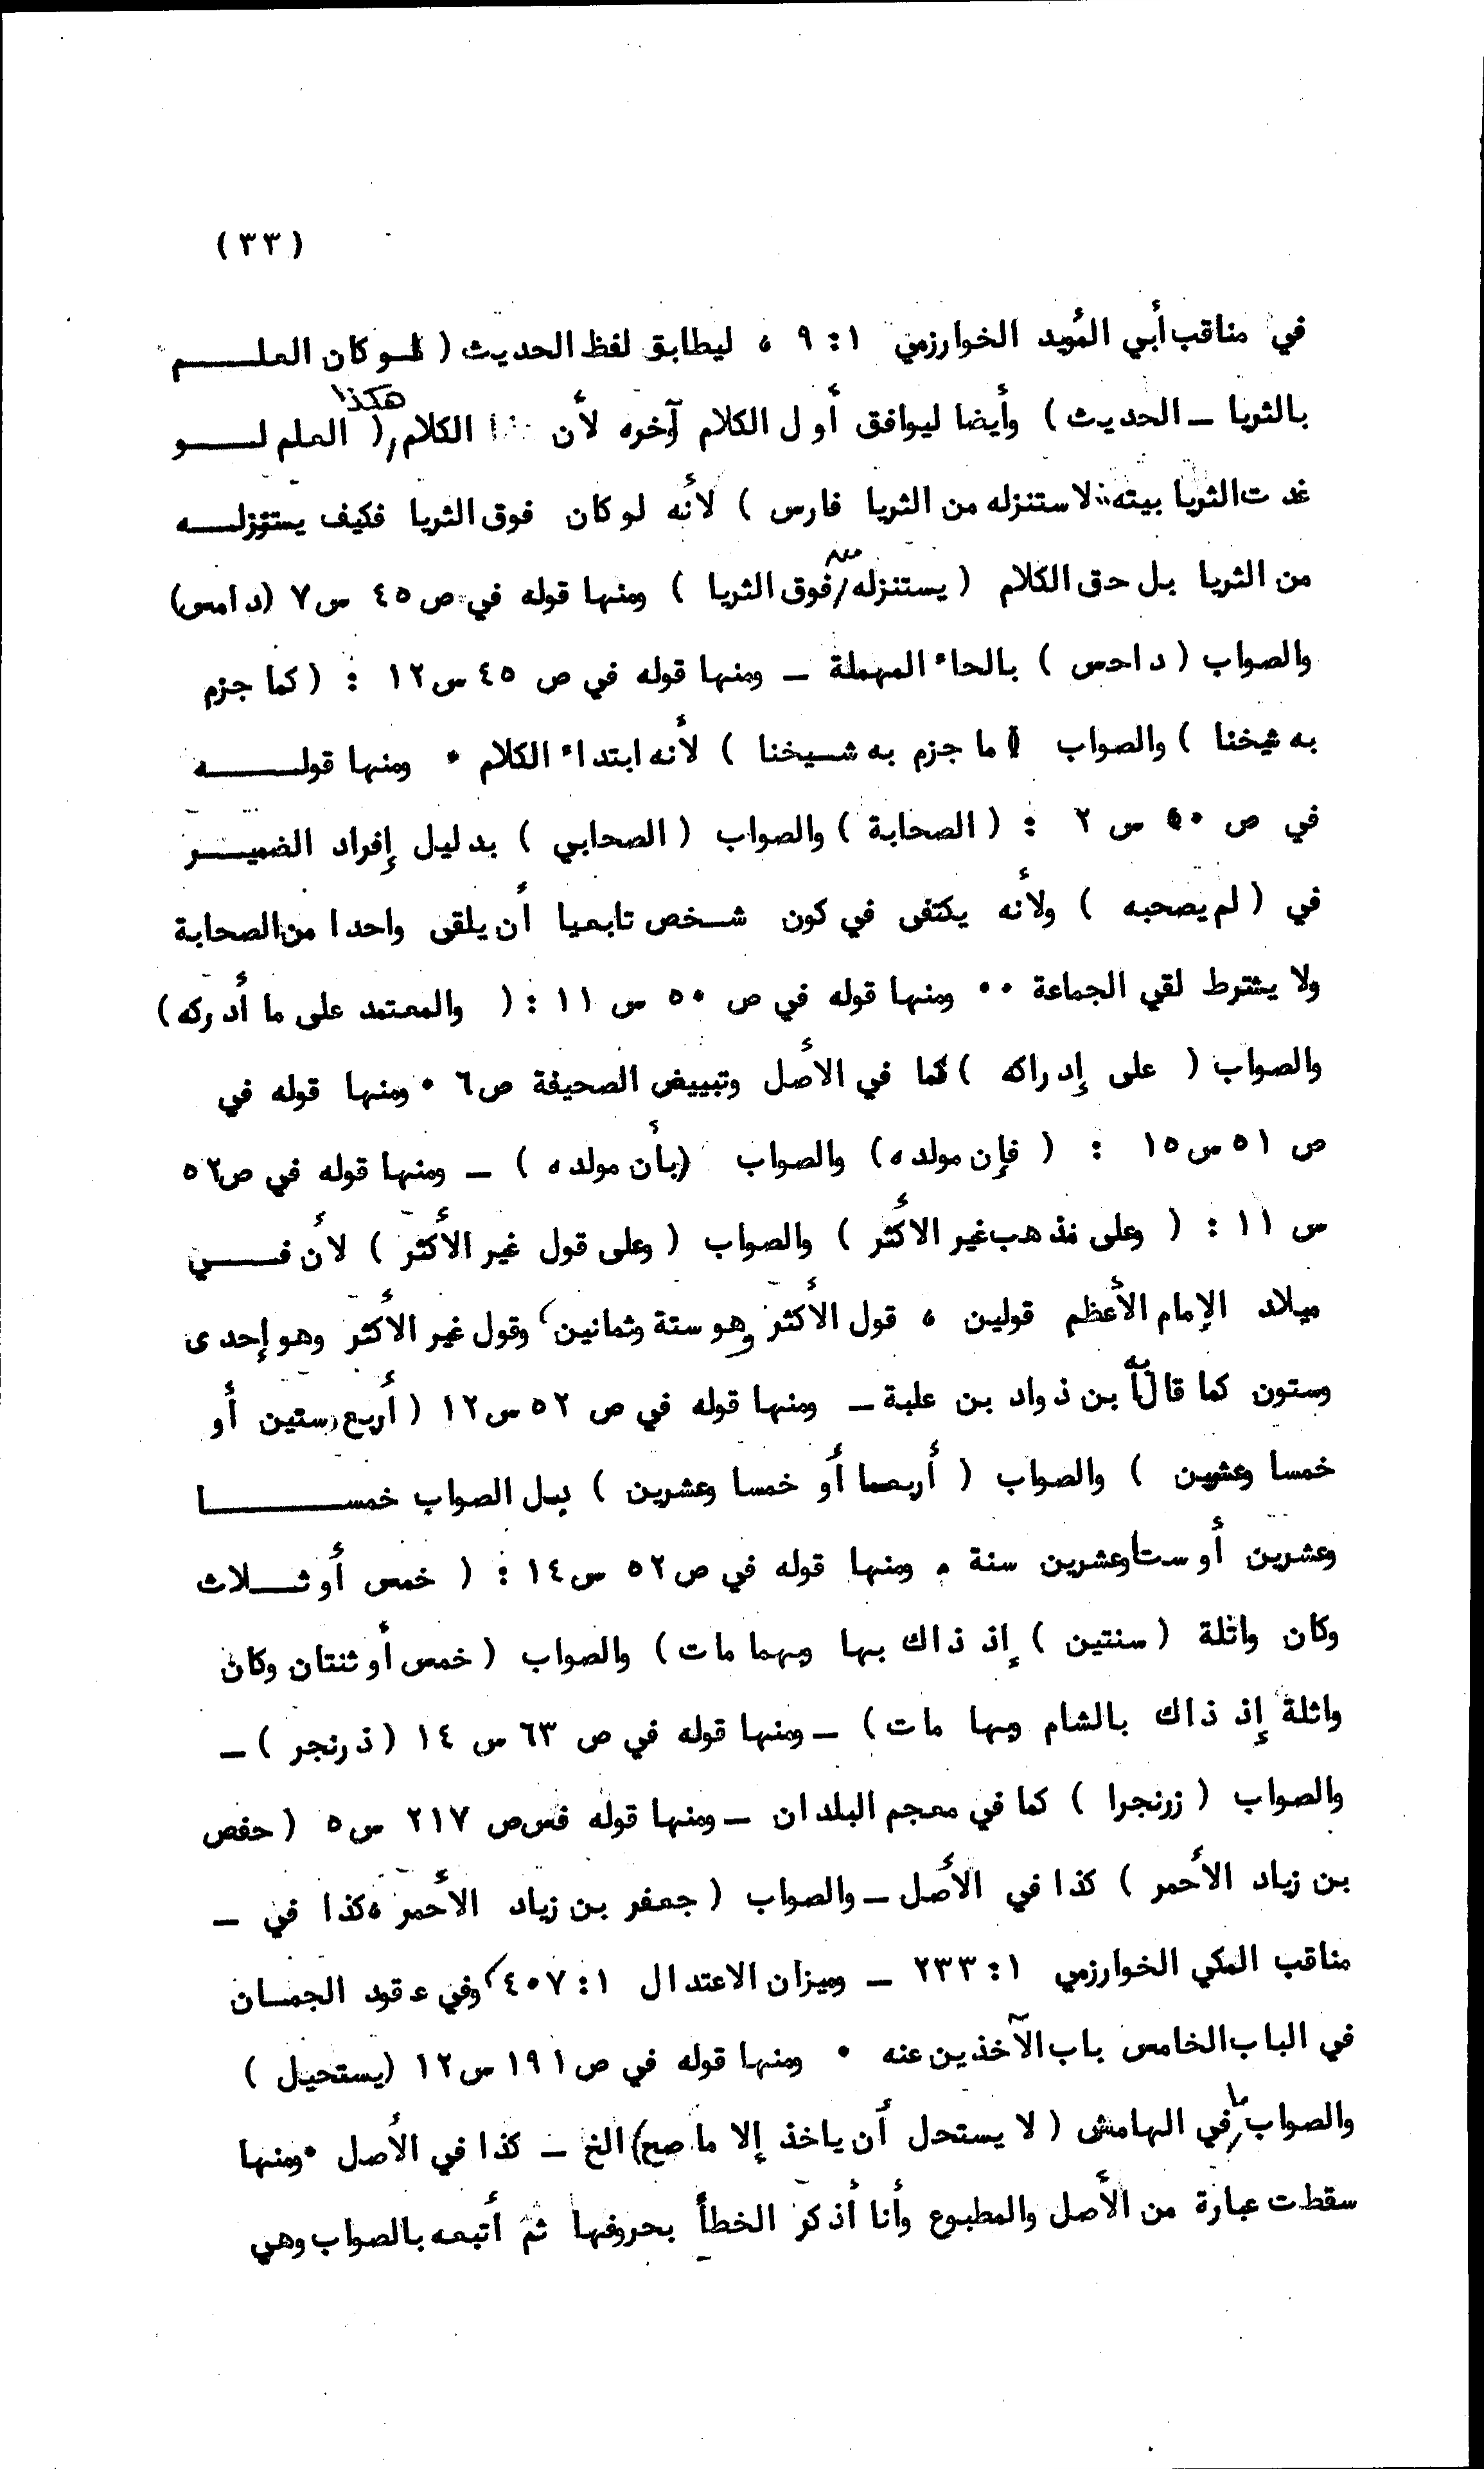 (٣٣)
في مناقب أبي المؤيد الخوارزمي ١ : ٩ ، ليطابق لفظ الحديث ( لو كان العلم
بالثريا ـ الحديث ) وأيضا ليوافق أول الكلام آخره لأن الكلام هكذا ( العلم لو
غدت الثريا بيته : لاستنزله من الثريا فارس ) لأنه لو كان فوق الثريا فكيف يستنزله
من الثريا بل حق الكلام ( يستنزله من فوق الثريا ) ومنها قوله في ص ٤٥ س ٧ (دامس)
والصواب ( داحس ) بالحاء المهملة ـ ومنها قوله في ص ٤٥ س ١٢ : ( كما جزم
به شيخنا ) والصواب ( ما جزم به شيخنا ) لأنه ابتداء الكلام ٠ ومنها قوله
في ص ٥٠ س ٢ : ( الصحابة ) والصواب ( الصحابي ) بدليل إفراد الضمير
في ( لم يصحبه ) ولأنه يكتفى في كون شخص تابعيا أن يلقى واحدا من الصحابة
ولا يشترط لقي الجماعة ٠٠ ومنها قوله في ص ٥٠ س ١١ : ( والمعتمد على ما أدركه )
والصواب ( على إدراكه ) كما في الأصل وتبييض الصحيفة ص ٦ ٠ ومنها قوله في
ص ٥١ س ١٥ : ( فإن مولده ) والصواب ( بأن مولده ) ـ ومنها قوله في ص ٥٢
س ١١ : ( وعلى مذهب غير الأكثر ) والصواب ( وعلى قول غير الأكثر ) لأن في
ميلاد الإمام الأعظم قولين ، قول الأكثر وهو ستة وثمانين ، وقول غير الأكثر وهو إحدى
وستون كما قال به بن ذواد بن علبة ـ ومنها قوله في ص ٥٢ س ١٢ ( أربع وستين أو
خمسا وعشرين ) والصواب ( أربعا أو خمسا وعشرين ) بل الصواب خمسا
وعشرين أو ستا وعشرين سنة ٠ ومنها قوله في ص ٥٢ س ١٤ : ( خمس أو ثلاث
وكان واثلة ( سنتين ) إذ ذاك بها وبهما مات ) والصواب ( خمس أو ثنتان وكان
واثلة إذ ذاك بالشام وبها مات ) ـ ومنها قوله في ص ٦٣ س ١٤ ( ذرنجر ) ـ
والصواب ( زرنجرا ) كما في معجم البلدان ـ ومنها قوله في ص ٢١٧ س ٥ ( حفص
بن زياد الأحمر ) كذا في الأصل ـ والصواب ( جعفر بن زياد الأحمر ، كذا في ـ
مناقب المكي الخوارزمي ١ : ٢٣٣ ـ وميزان الاعتدال ١ : ٤٠٧ ، وفي عقود الجمان
في الباب الخامس باب الآخذين عنه ٠ ومنها قوله في ص ١٩١ س ١٢ ( يستحيل )
والصواب ما في الهامش ( لا يستحل أن ياخذ إلا ما صح ) الخ ـ كذا في الأصل ٠ ومنها
سقطت عبارة من الأصل والمطبوع وأنا أذكر الخطأ بحروفها ثم أتبعه بالصواب وهي